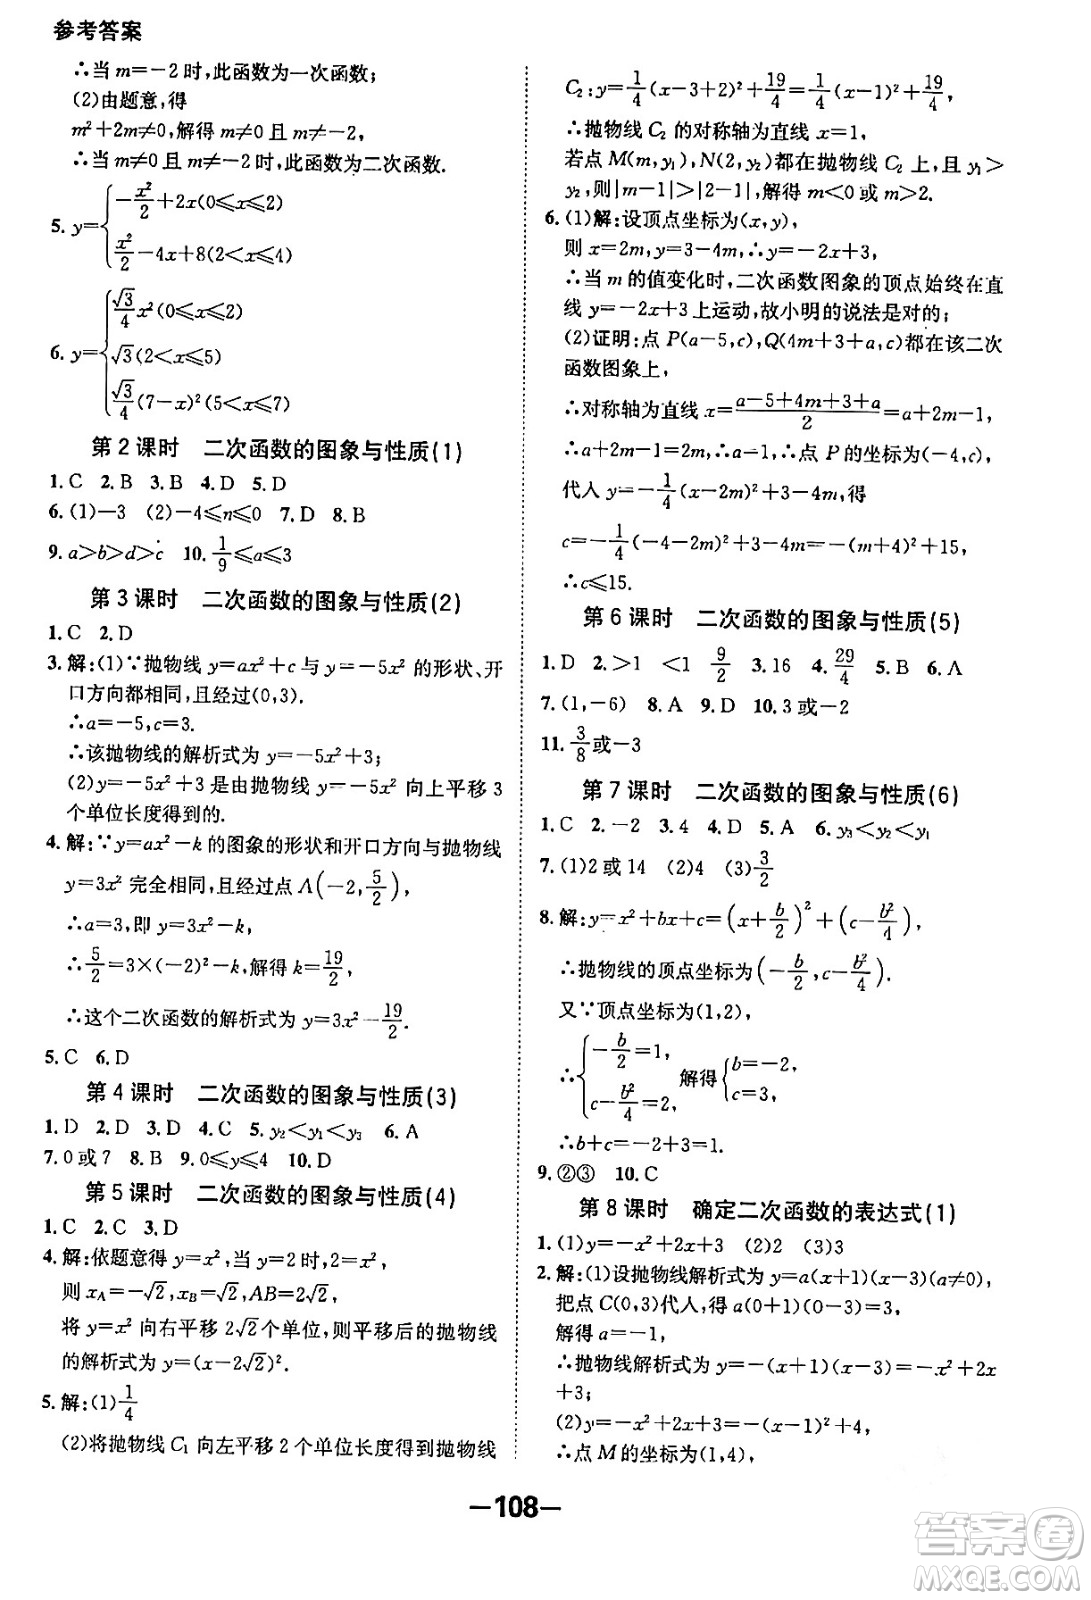 参考答案
∴当 m=-2 时,此函数为一次函数;
(2)由题意,得
m²+2m≠0,解得 m≠0 且 m≠-2,
∴当 m≠0 且 m≠-2 时,此函数为二次函数.
5. y={-x²/2+2x(0≤x≤2)
x²/2-4x+8(2<x≤4)
6. y={√3/4 x²(0≤x≤2)
√3(2<x≤5)
√3/4(7-x)²(5<x≤7)
第 2 课时 二次函数的图象与性质(1)
1. C 2. B 3. B 4. D 5. D
6. (1)-3 (2)-4≤n≤0 7. D 8. B
9. a>b>d>c 10. 1/9≤a≤3
第 3 课时 二次函数的图象与性质(2)
1. C 2. D
3. 解:(1)∵抛物线 y=ax²+c 与 y=-5x² 的形状、开
口方向都相同,且经过(0,3).
∴a=-5,c=3.
∴该抛物线的解析式为 y=-5x²+3;
(2)y=-5x²+3 是由抛物线 y=-5x² 向上平移 3
个单位长度得到的.
4. 解:∵y=ax²-k 的图象的形状和开口方向与抛物线
y=3x² 完全相同,且经过点 A(-2,5/2),
∴a=3,即 y=3x²-k,
∴5/2=3×(-2)²-k,解得 k=19/2,
∴这个二次函数的解析式为 y=3x²-19/2.
5. C 6. D
第 4 课时 二次函数的图象与性质(3)
1. D 2. D 3. D 4. C 5. y₂<y₁<y₃ 6. A
7. 0 或 7 8. B 9. 0≤y≤4 10. D
第 5 课时 二次函数的图象与性质(4)
1. C 2. C 3. D
4. 解:依题意得 y=x²,当 y=2 时,2=x²,
则 x_A=-√2,x_B=√2,AB=2√2,
将 y=x² 向右平移 2√2 个单位,则平移后的抛物线
的解析式为 y=(x-2√2)².
5. 解:(1)1/4
(2)将抛物线 C₁ 向左平移 2 个单位长度得到抛物线
C₂:y=1/4(x-3+2)²+19/4=1/4(x-1)²+19/4,
∴抛物线 C₂ 的对称轴为直线 x=1,
若点 M(m,y₁),N(2,y₂)都在抛物线 C₂ 上,且 y₁>
y₂,则|m-1|>|2-1|,解得 m<0 或 m>2.
6. (1)解:设顶点坐标为(x,y),
则 x=2m,y=3-4m,∴y=-2x+3,
∴当 m 的值变化时,二次函数图象的顶点始终在直
线 y=-2x+3 上运动,故小明的说法是对的;
(2)证明:点 P(a-5,c),Q(4m+3+a,c)都在该二次
函数图象上,
∴对称轴为直线 x=(a-5+4m+3+a)/2=a+2m-1,
∴a+2m-1=2m,∴a=1,∴点 P 的坐标为(-4,c),
代入 y=-1/4(x-2m)²+3-4m,得
c=-1/4(-4-2m)²+3-4m=-(m+4)²+15,
∴c≤15.
第 6 课时 二次函数的图象与性质(5)
1. D 2. >1 <1 9/2 3. 16 4. 29/4 5. B 6. A
7. (1,-6) 8. A 9. D 10. 3 或-2
11. 3/8或-3
第 7 课时 二次函数的图象与性质(6)
1. C 2. -2 3. 4 4. D 5. A 6. y₃<y₂<y₁
7. (1)2 或 14 (2)4 (3)3/2
8. 解:y=x²+bx+c=(x+b/2)²+(c-b²/4),
∴抛物线的顶点坐标为(-b/2,c-b²/4).
又∵顶点坐标为(1,2),
∴{-b/2=1, c-b²/4=2, 解得{b=-2, c=3,
∴b+c=-2+3=1.
9. ②③ 10. C
第 8 课时 确定二次函数的表达式(1)
1. (1)y=-x²+2x+3 (2)2 (3)3
2. 解:(1)设抛物线解析式为 y=a(x+1)(x-3)(a≠0),
把点 C(0,3)代入,得 a(0+1)(0-3)=3,
解得 a=-1,
∴抛物线解析式为 y=-(x+1)(x-3)=-x²+2x
+3;
(2)y=-x²+2x+3=-(x-1)²+4,
∴点 M 的坐标为(1,4),
-108-
答案圈
MXQE.COM